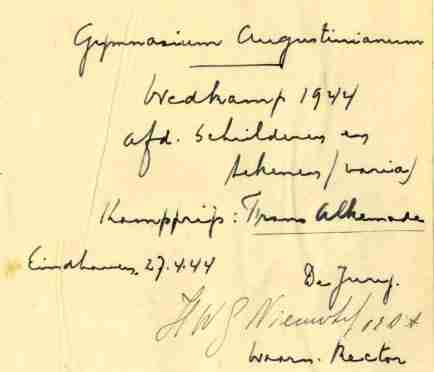 Gymnasium Augustinianum
Wedkamp 1944
afd. Schilderen en
tekenen (varia)
Kampprijs: Frans Alkemade
Eindhoven, 27.4.44
De Jury.
H W G
Waarn. Rector